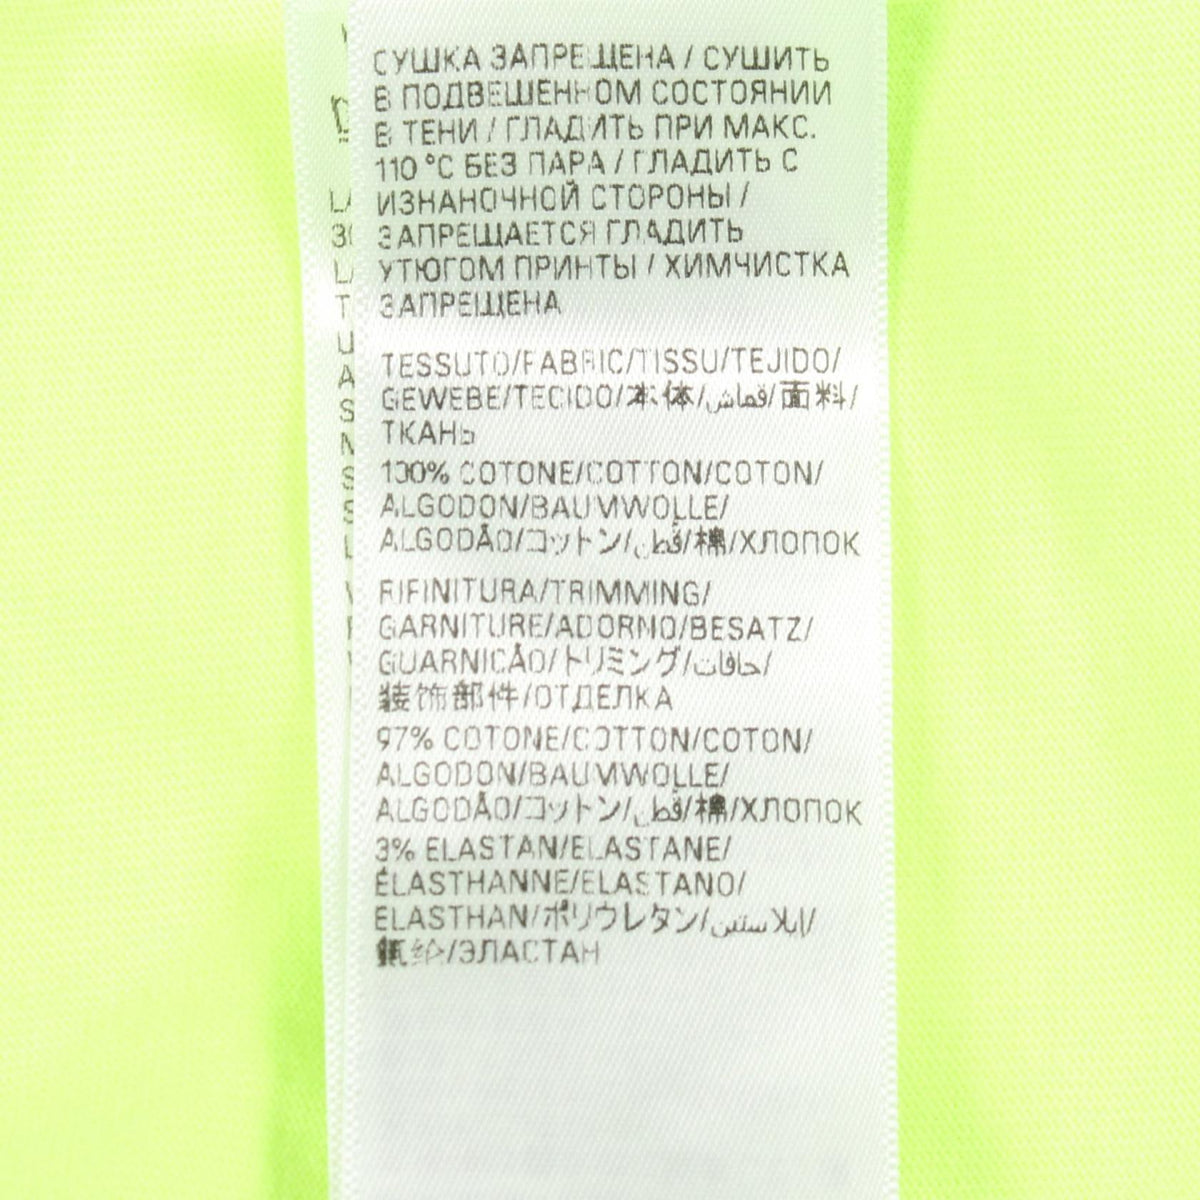 СУШКА ЗАПРЕЩЕНА / СУШИТЬ
В ПОДВЕШЕННОМ СОСТОЯНИИ
В ТЕНИ / ГЛАДИТЬ ПРИ МАКС.
110 °C БЕЗ ПАРА / ГЛАДИТЬ С
ИЗНАНОЧНОЙ СТОРОНЫ /
ЗАПРЕЩАЕТСЯ ГЛАДИТЬ
УТЮГОМ ПРИНТЫ / ХИМЧИСТКА
ЗАПРЕЩЕНА
TESSUTO/FABRIC/TISSU/TEJIDO/
GEWEBE/TECIDO/本体/قماش/面料/
ТКАНЬ
100% COTONE/COTTON/COTON/
ALGODON/BAUMWOLLE/
ALGODÃO/コットン/قطن/棉/ХЛОПОК
RIFINITURA/TRIMMING/
GARNITURE/ADORNO/BESATZ/
GUARNICÃO/トリミング/حافات/
装饰部件/ОТДЕЛКА
97% COTONE/COTTON/COTON/
ALGODON/BAUMWOLLE/
ALGODÃO/コットン/قطن/棉/ХЛОПОК
3% ELASTAN/ELASTANE/
ÉLASTHANNE/ELASTANO/
ELASTHAN/ポリウレタン/إيلاستين/
氨纶/ЭЛАСТАН